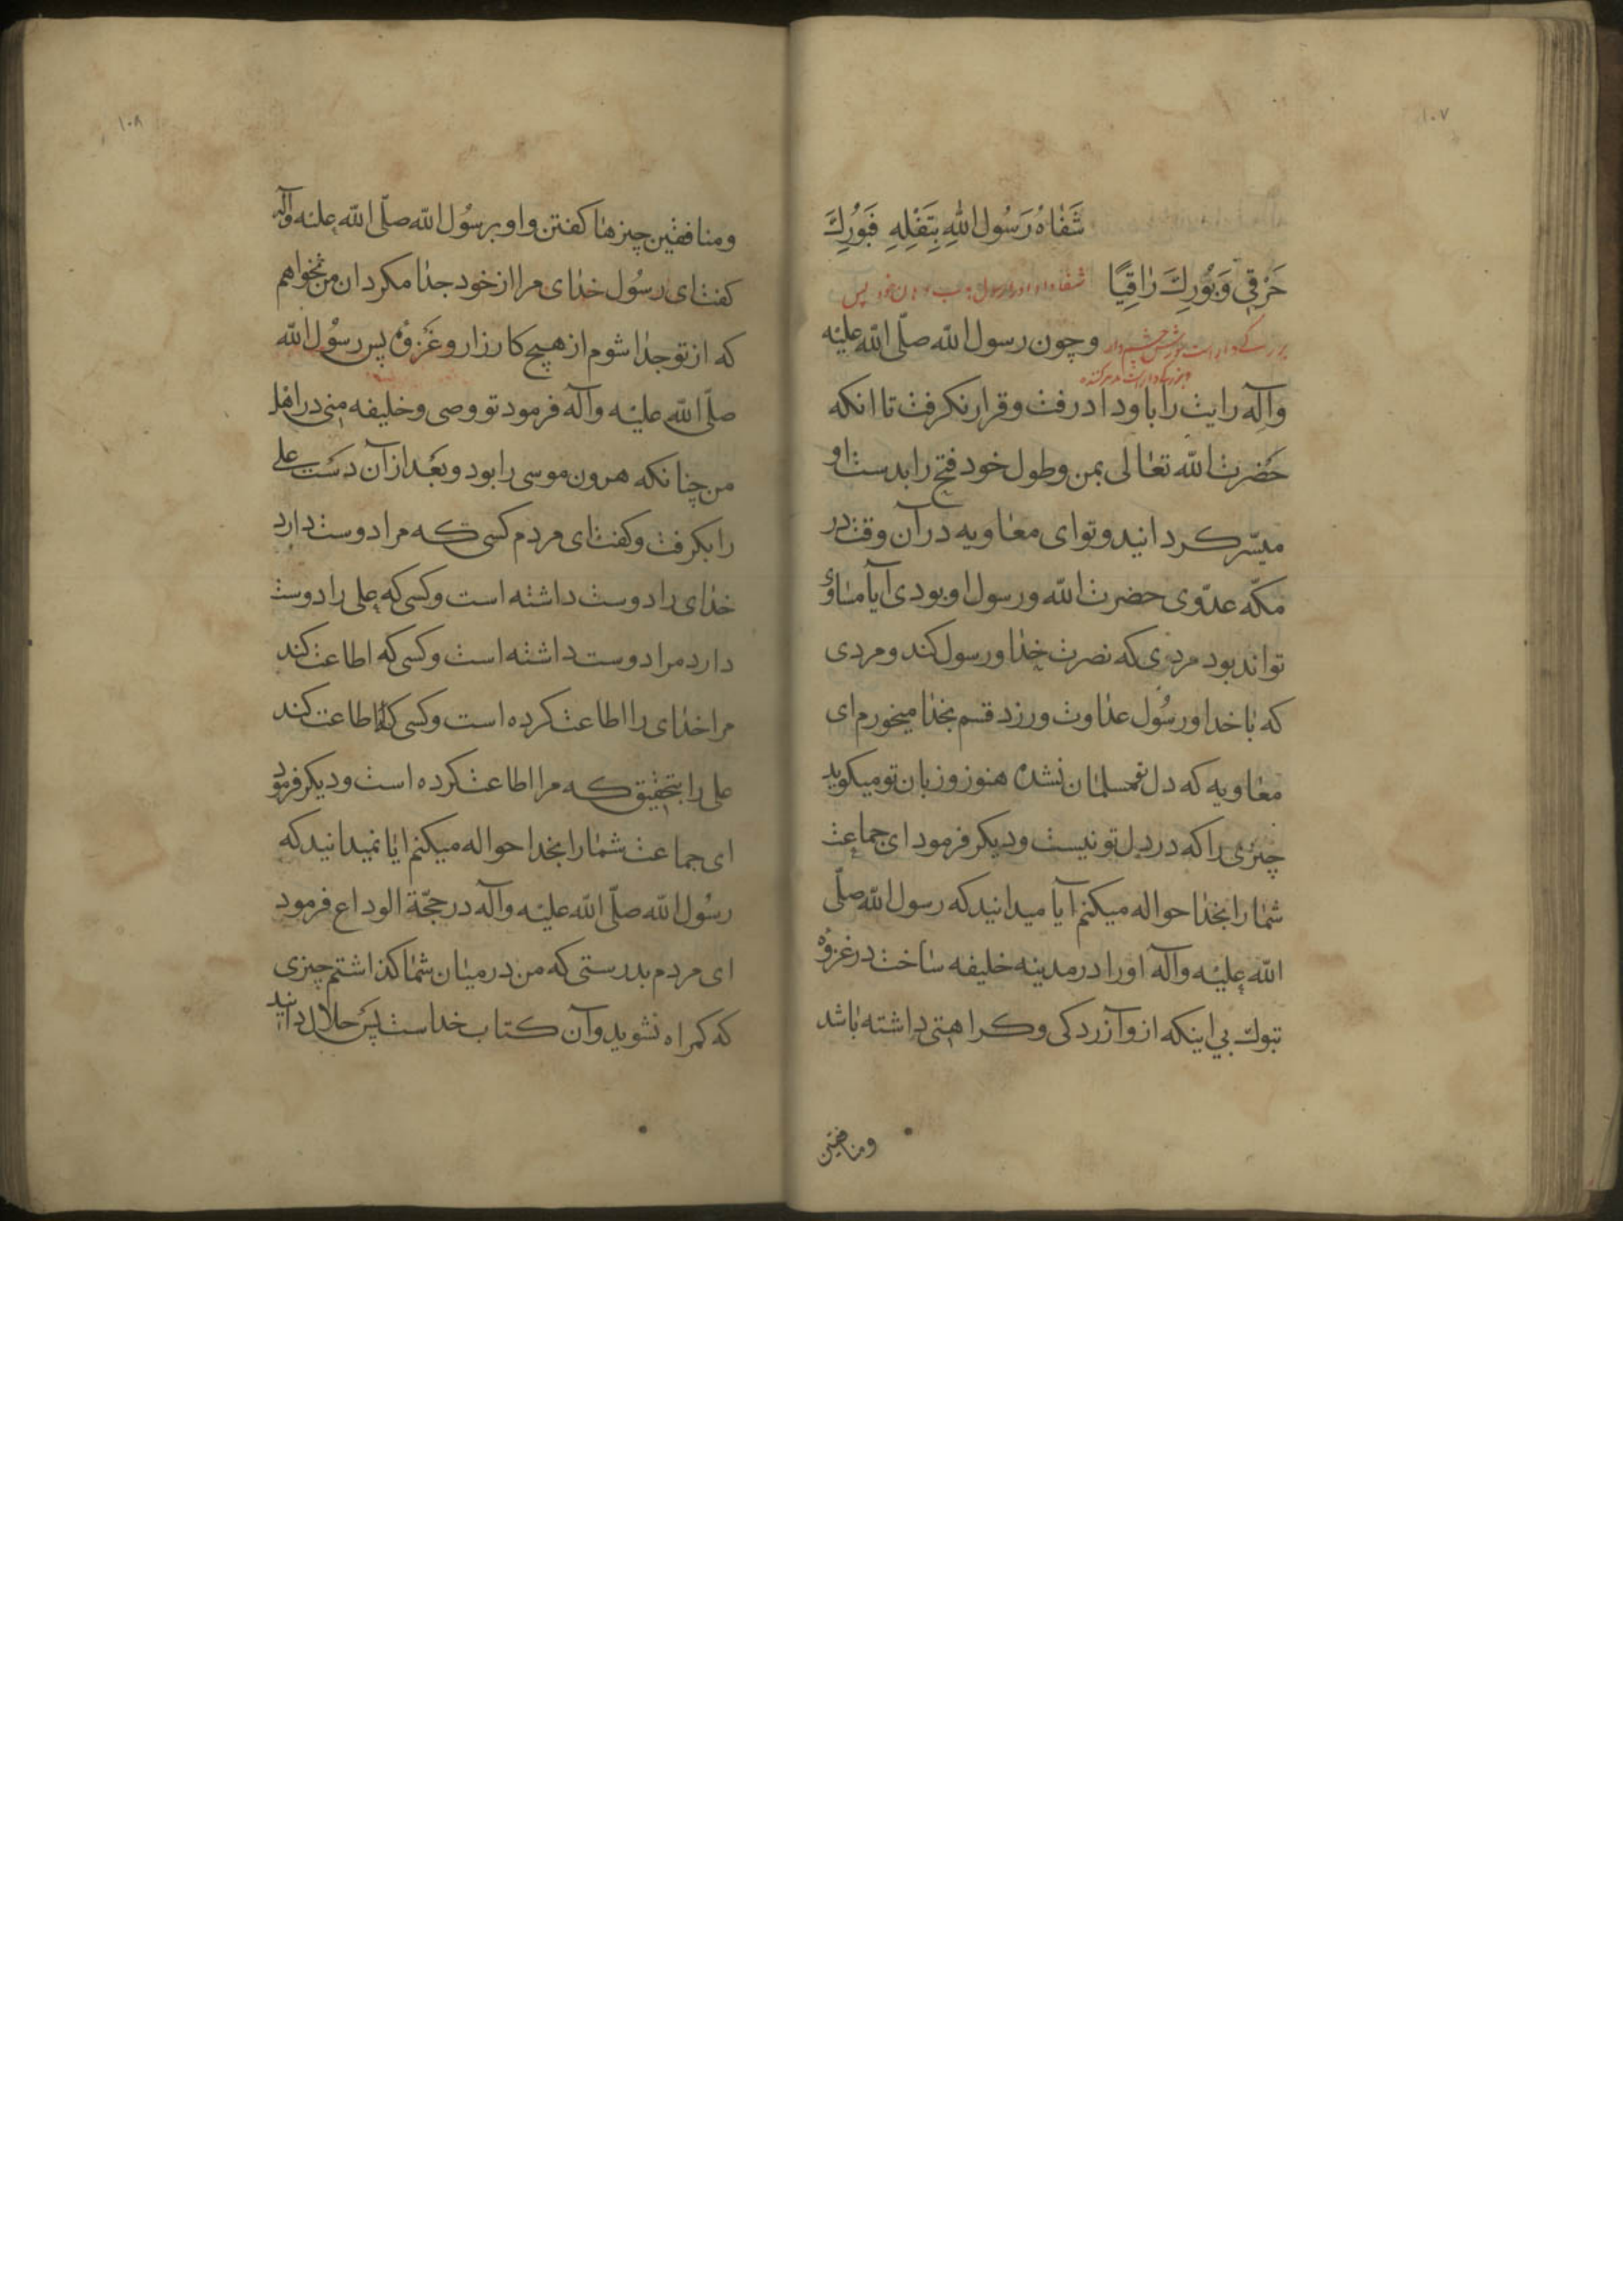 ١٠٧
شَفَاهُ رَسُول اللّٰهِ بِتَفْلِهِ فَبُورِكَ
مَرْقِي وَبُورِكَ رَاقِيًا شفا داد او را رسول بآب دهان خود پس
وچون رسول اللّه صلّى اللّه عليه
وآله رايت را باو داد رفت وقرار نكرفت تا انكه
حضرت اللّه تعالى بمن وطول خود فتح را بدست او
ميسّر كردانيد وتو اى معاويه در آن وقت در
مكّه عدّوى حضرت اللّه ورسول او بودى آيا مساوى
تواند بود مردى كه نصرت خدا ورسول كند ومردى
كه با خدا ورسُول عداوت ورزد قسم بخدا ميخورم اى
معاويه كه دل تو مسلمان نشده هنوز وزبان تو ميكويد
چيزى را كه در دل تو نيست وديكر فرمود اى جماعت
شما را بخدا حواله ميكنم آيا ميدانيد كه رسول اللّه صلّى
اللّه عليه وآله او را در مدينه خليفه ساخت در غزوۀ
تبوك بي اينكه از و آزردكى وكراهتى داشته باشد
ومنافقين
١٠٨
ومنافقين چيزها كفتن واو برسُول اللّه صلّى اللّه عليه وآله
كفت اى رسُول خداى مرا از خود جدا مكردان من نميخواهم
كه از تو جدا شوم از هيچ كارزار وغزوۀ پس رسُول اللّه
صلّى اللّه عليه وآله فرمود تو وصى وخليفه منى در اهل
من چنانكه هرون موسى را بود وبعُد از آن دست على
را بكرفت وكفت اى مردم كسى كه مرا دوست دارد
خداى را دوست داشته است وكسى كه على را دوست
دارد مرا دوست داشته است وكسى كه اطاعت كند
مرا خداى را اطاعت كرده است وكسى كه اطاعت كند
على را بتحقيق كه مرا اطاعت كرده است وديكر فرمود
اى جماعت شما را بخدا حواله ميكنم ايا نميدانيد كه
رسُول اللّه صلّى اللّه عليه وآله در حجّة الوداع فرمود
اى مردم بدرستى كه من در ميان شما كذاشتم چيزى
كه كمراه نشويد وآن كتاب خداست پس حلال دانيد